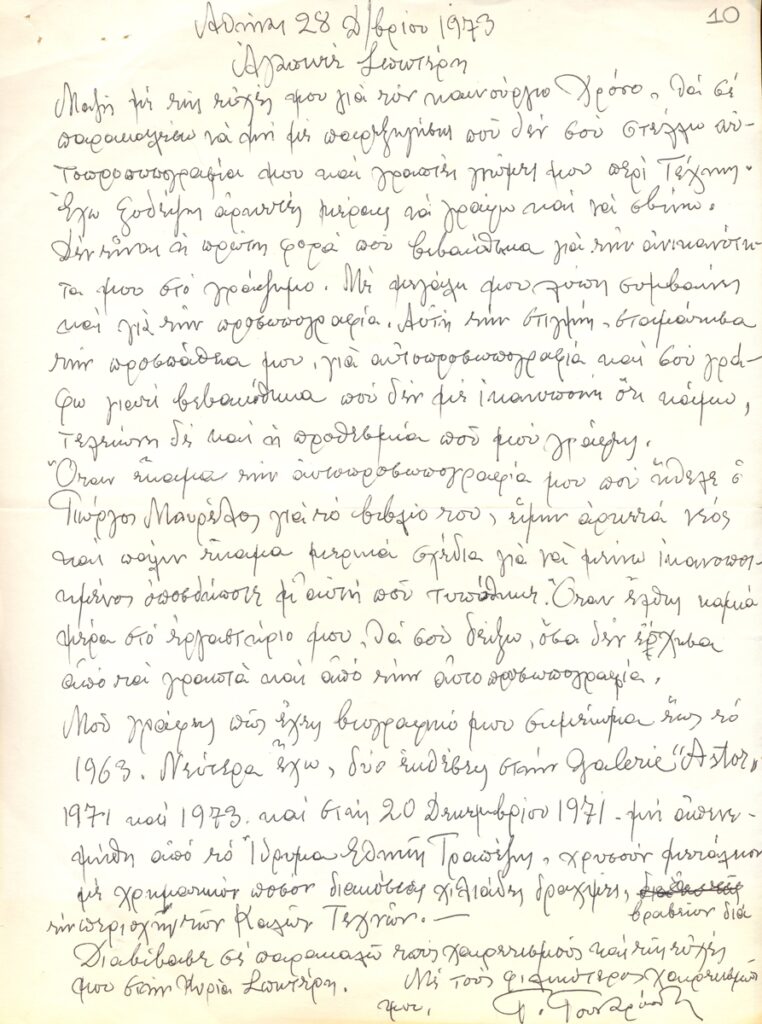 10
Ἀθήνα 28 Δ/βρίου 1973
Ἀγαπητέ Σπητέρη
Μαζή μέ τίς εὐχές μου γιά τόν καινούργιο Χρόνο, θά σέ
παρακαλέσω νά μή μέ παρεξηγήσης πού δέν σοῦ στέλλω αὐ-
τοπροσωπογραφία μου καί γραπτές γνώμες μου περί Τέχνης.
Ἔχω ξοδέψη ἀρκετές μέρες νά γράφω καί νά σβήνω.
Δέν εἶναι ἡ πρώτη φορά πού βεβαιώθηκα γιά τήν ἀνικανότη-
τα μου στό γράψιμο. Μέ μεγάλη μου λύπη συμβαίνη
καί γιά τήν προσωπογραφία. Αὐτή τήν στιγμή, σταμάτησα
τήν προσπάθεια μου, γιά αὐτοπροσωπογραφία καί σοῦ γρά-
φω γιατί βεβαιώθηκα πού δέν μέ ἱκανοποιῆ ὅτι κάμω,
τελειώνη δέ καί ἡ προθεσμία πού μοῦ γράφης.
Ὅταν ἔκαμα τήν αὐτοπροσωπογραφία μου πού ἤθελε ὁ
Γιῶργος Μαυρέλος γιά τό βιβλίο του, ἤμην ἀρκετά νέος
καί πάλην ἔκαμα μερικά σχέδια γιά νά μείνω ἱκανοποι-
ημένος ὁποσδήποτε μ' αὐτή πού τυπώθηκε. Ὅταν ἔλθης καμιά
μέρα στό ἐργαστήριο μου, θά σοῦ δείξω, ὅσα δέν ἔσχισα
ἀπό τά γραπτά καί ἀπό τήν αὐτοπροσωπογραφία.
Μοῦ γράφης πώς ἔχης βιογραφικό μου σημείωμα ἕως τό
1963. Νεώτερα ἔχω, δύο ἐκθέσεις στήν Galerie "Astor"
1971 καί 1973. καί στίς 20 Δεκεμβρίου 1971 - μοῦ ἀπενε-
μήθη ἀπό τό Ἵδρυμα Ἐθνικῆς Τραπέζης, χρυσοῦν μετάλλιον
μέ χρηματικόν ποσόν διακόσιες χιλιάδες δραχμές,
βραβεῖον διά
τήν περιοχήν τῶν Καλῶν Τεχνῶν. —
Διαβίβασε σέ παρακαλῶ τούς χαιρετισμούς καί τίς εὐχές
μου στήν Κυρία Σπητέρη. Μέ τούς φιλικώτερους χαιρετισμούς
μου,